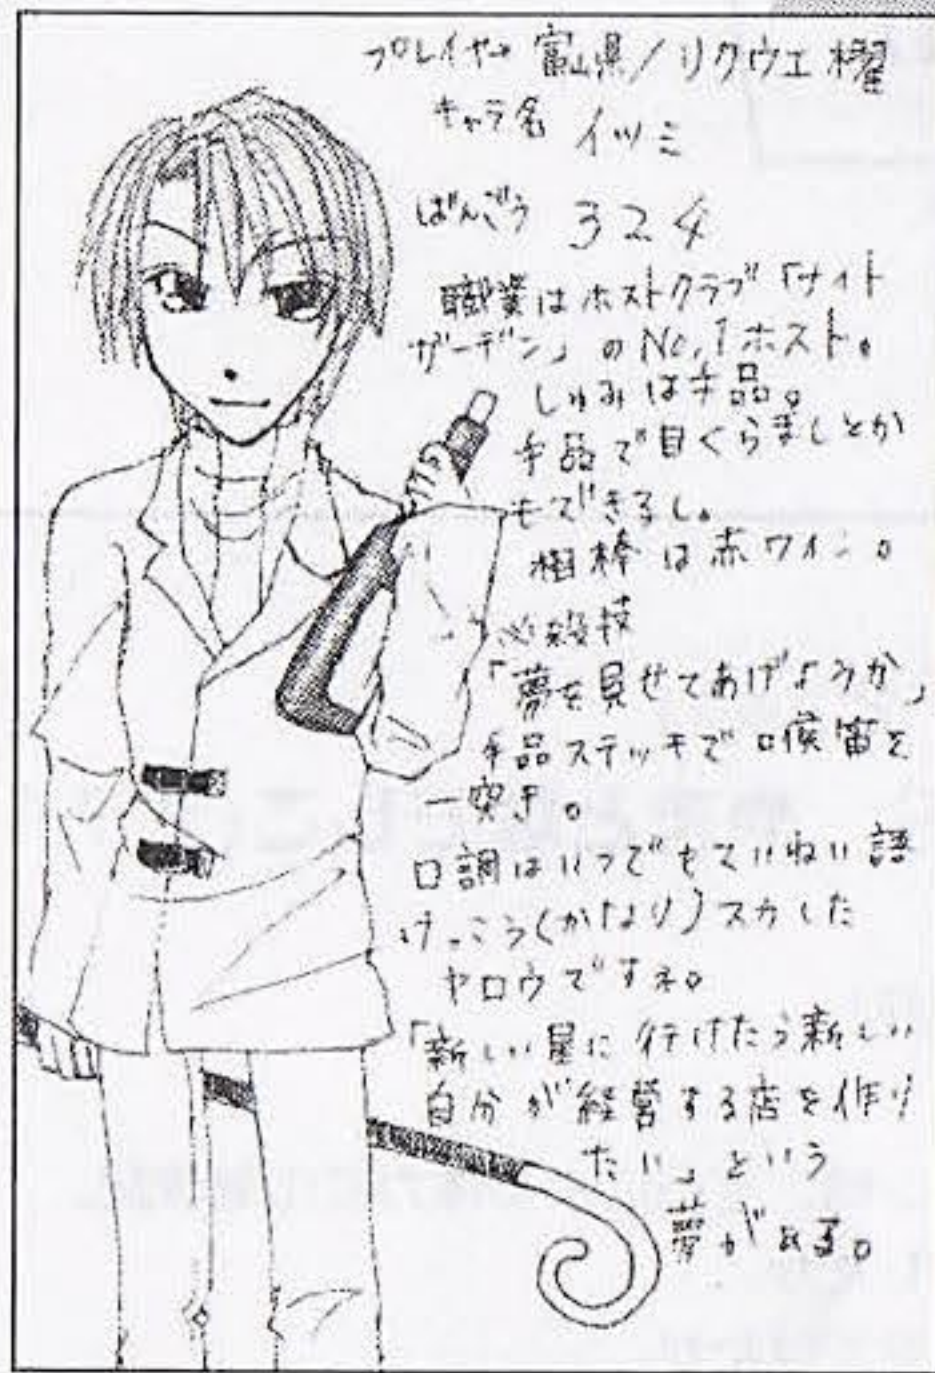 プレイヤー 富山県/リクウエ 櫂
キャラ名 イツミ
ばんごう 324
職業はホストクラブ「ナイト
ガーデン」のNo,1ホスト。
しゅみは手品。
手品で目くらましとか
もできるし。
相棒は赤ワイン。
必殺技
「夢を見せてあげようか」
手品ステッキで口候笛を
一突き。
口調はいつでもていねい語
けっこう(かなり)スカした
ヤロウですネ。
「新しい星に行けたら新しい
自分が経営する店を作り
たい」という
夢がある。